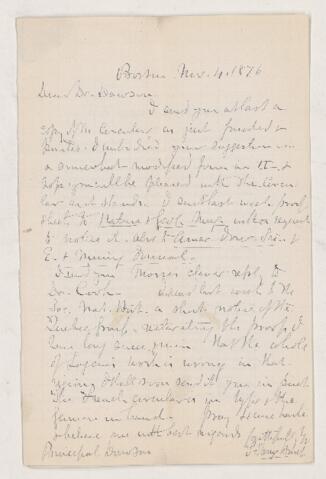 Boston Nov. 4. 1876
Dear Dr. Dawson
I send you at last a
copy of the circular as just printed &
I embodied your suggestion in
a somewhat modified form on II &
hope you will be pleased with the circu-
lar as it stands. I sent last week proof
sheets to Nature & Geol. Mag. with a request
to notice it. also to Amer. Jour. Sci. &
E. & Mining Journal.
I send you Morse's clever reply to
Dr. Cook. I sent last week to the
Soc. Nat. Hist. a short notice of the
Quebec group, reiterating the proofs I
have long since given that the whole
of Logan's work is wrong in that
region & shall soon send it you in print
The French circular is in type & the
German in hand. Pray
believe me with best regards
Principal Dawson
T. Sterry Hunt